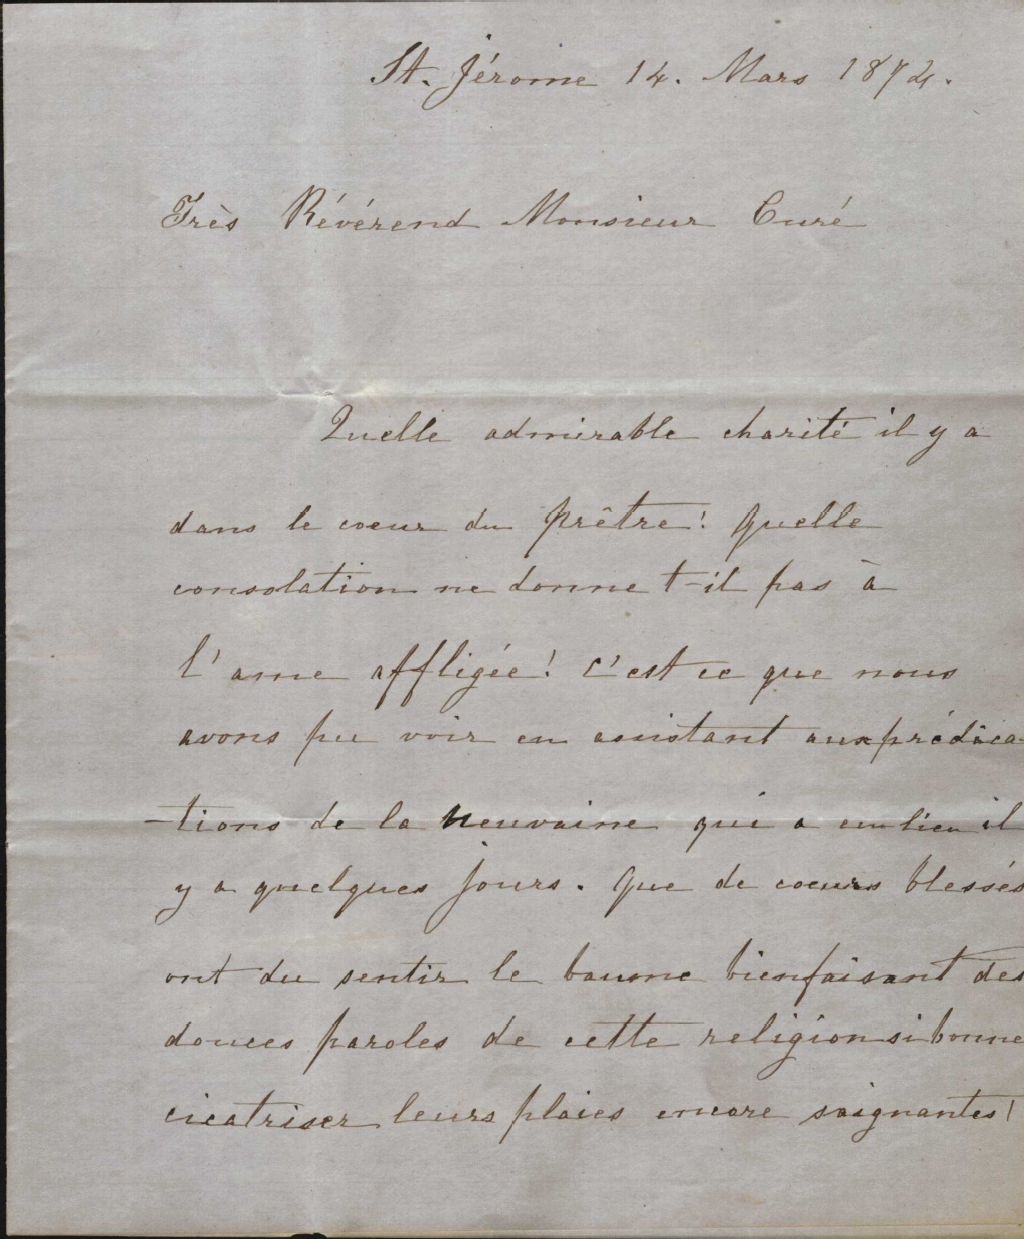 St. Jérome 14. Mars 1872.
Très Révérend Monsieur Curé
Quelle admirable charité il y a
dans le coeur du prêtre! quelle
consolation ne donne t-il pas à
l'ame affligée! c'est ce que nous
avons pu voir en assistant aux prédica-
-tions de la neuvaine qui a eu lieu il
y a quelques jours. que de coeurs blessés
ont du sentir le baume bienfaisant des
douces paroles de cette religion si bonne
cicatriser leurs plaies encore saignantes!